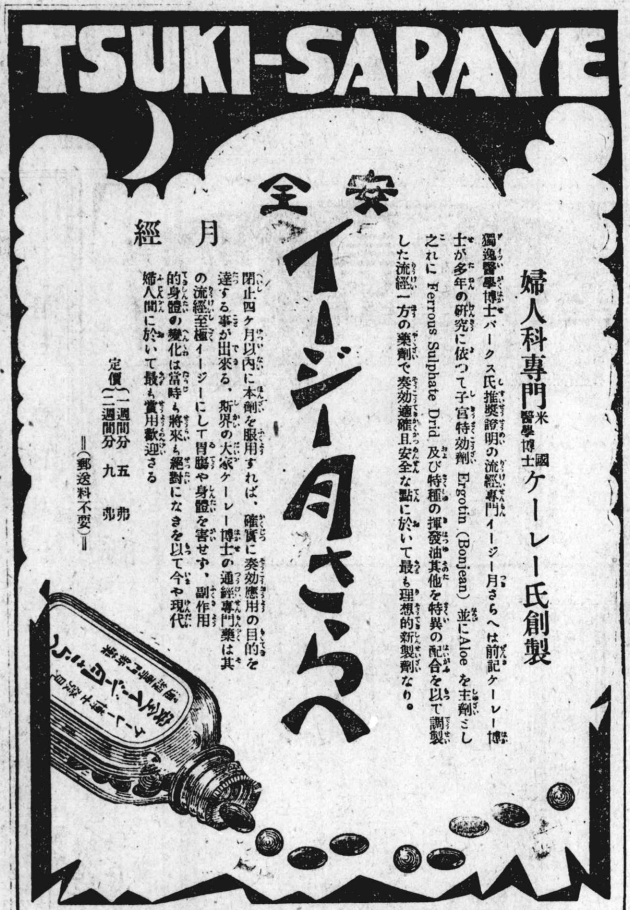 TSUKI-SARAYE
安全
イージー月さらへ
婦人科専門 米國醫學博士 ケーレー氏創製
獨逸醫學博士バークス氏推奬證明の流經專門イージー月さらへは前記ケーレー博
士が多年の研究に依つて子宮特効劑 Ergotin (Bonjean) 並にAloe を主劑とし
之れに Ferrous Sulphate Drid 及び特種の揮發油其他を特異の配合を以て調製
した流經一方の藥劑で奏効適確且安全な點に於いて最も理想的新製劑なり。
月經
閉止四ケ月以内に本劑を服用すれば、確實に奏効應用の目的を
達する事が出來る、斯界の大家ケーレー博士の通經專門藥は其
の流經至極イージーにして胃腸や身體を害せず、副作用
的身體の變化は當時も將來も絕對になきを以て今や現代
婦人間に於いて最も實用歡迎さる
定價 一週間分 五弗
二週間分 九弗
＝(郵送料不要)＝
イージー月さらへ